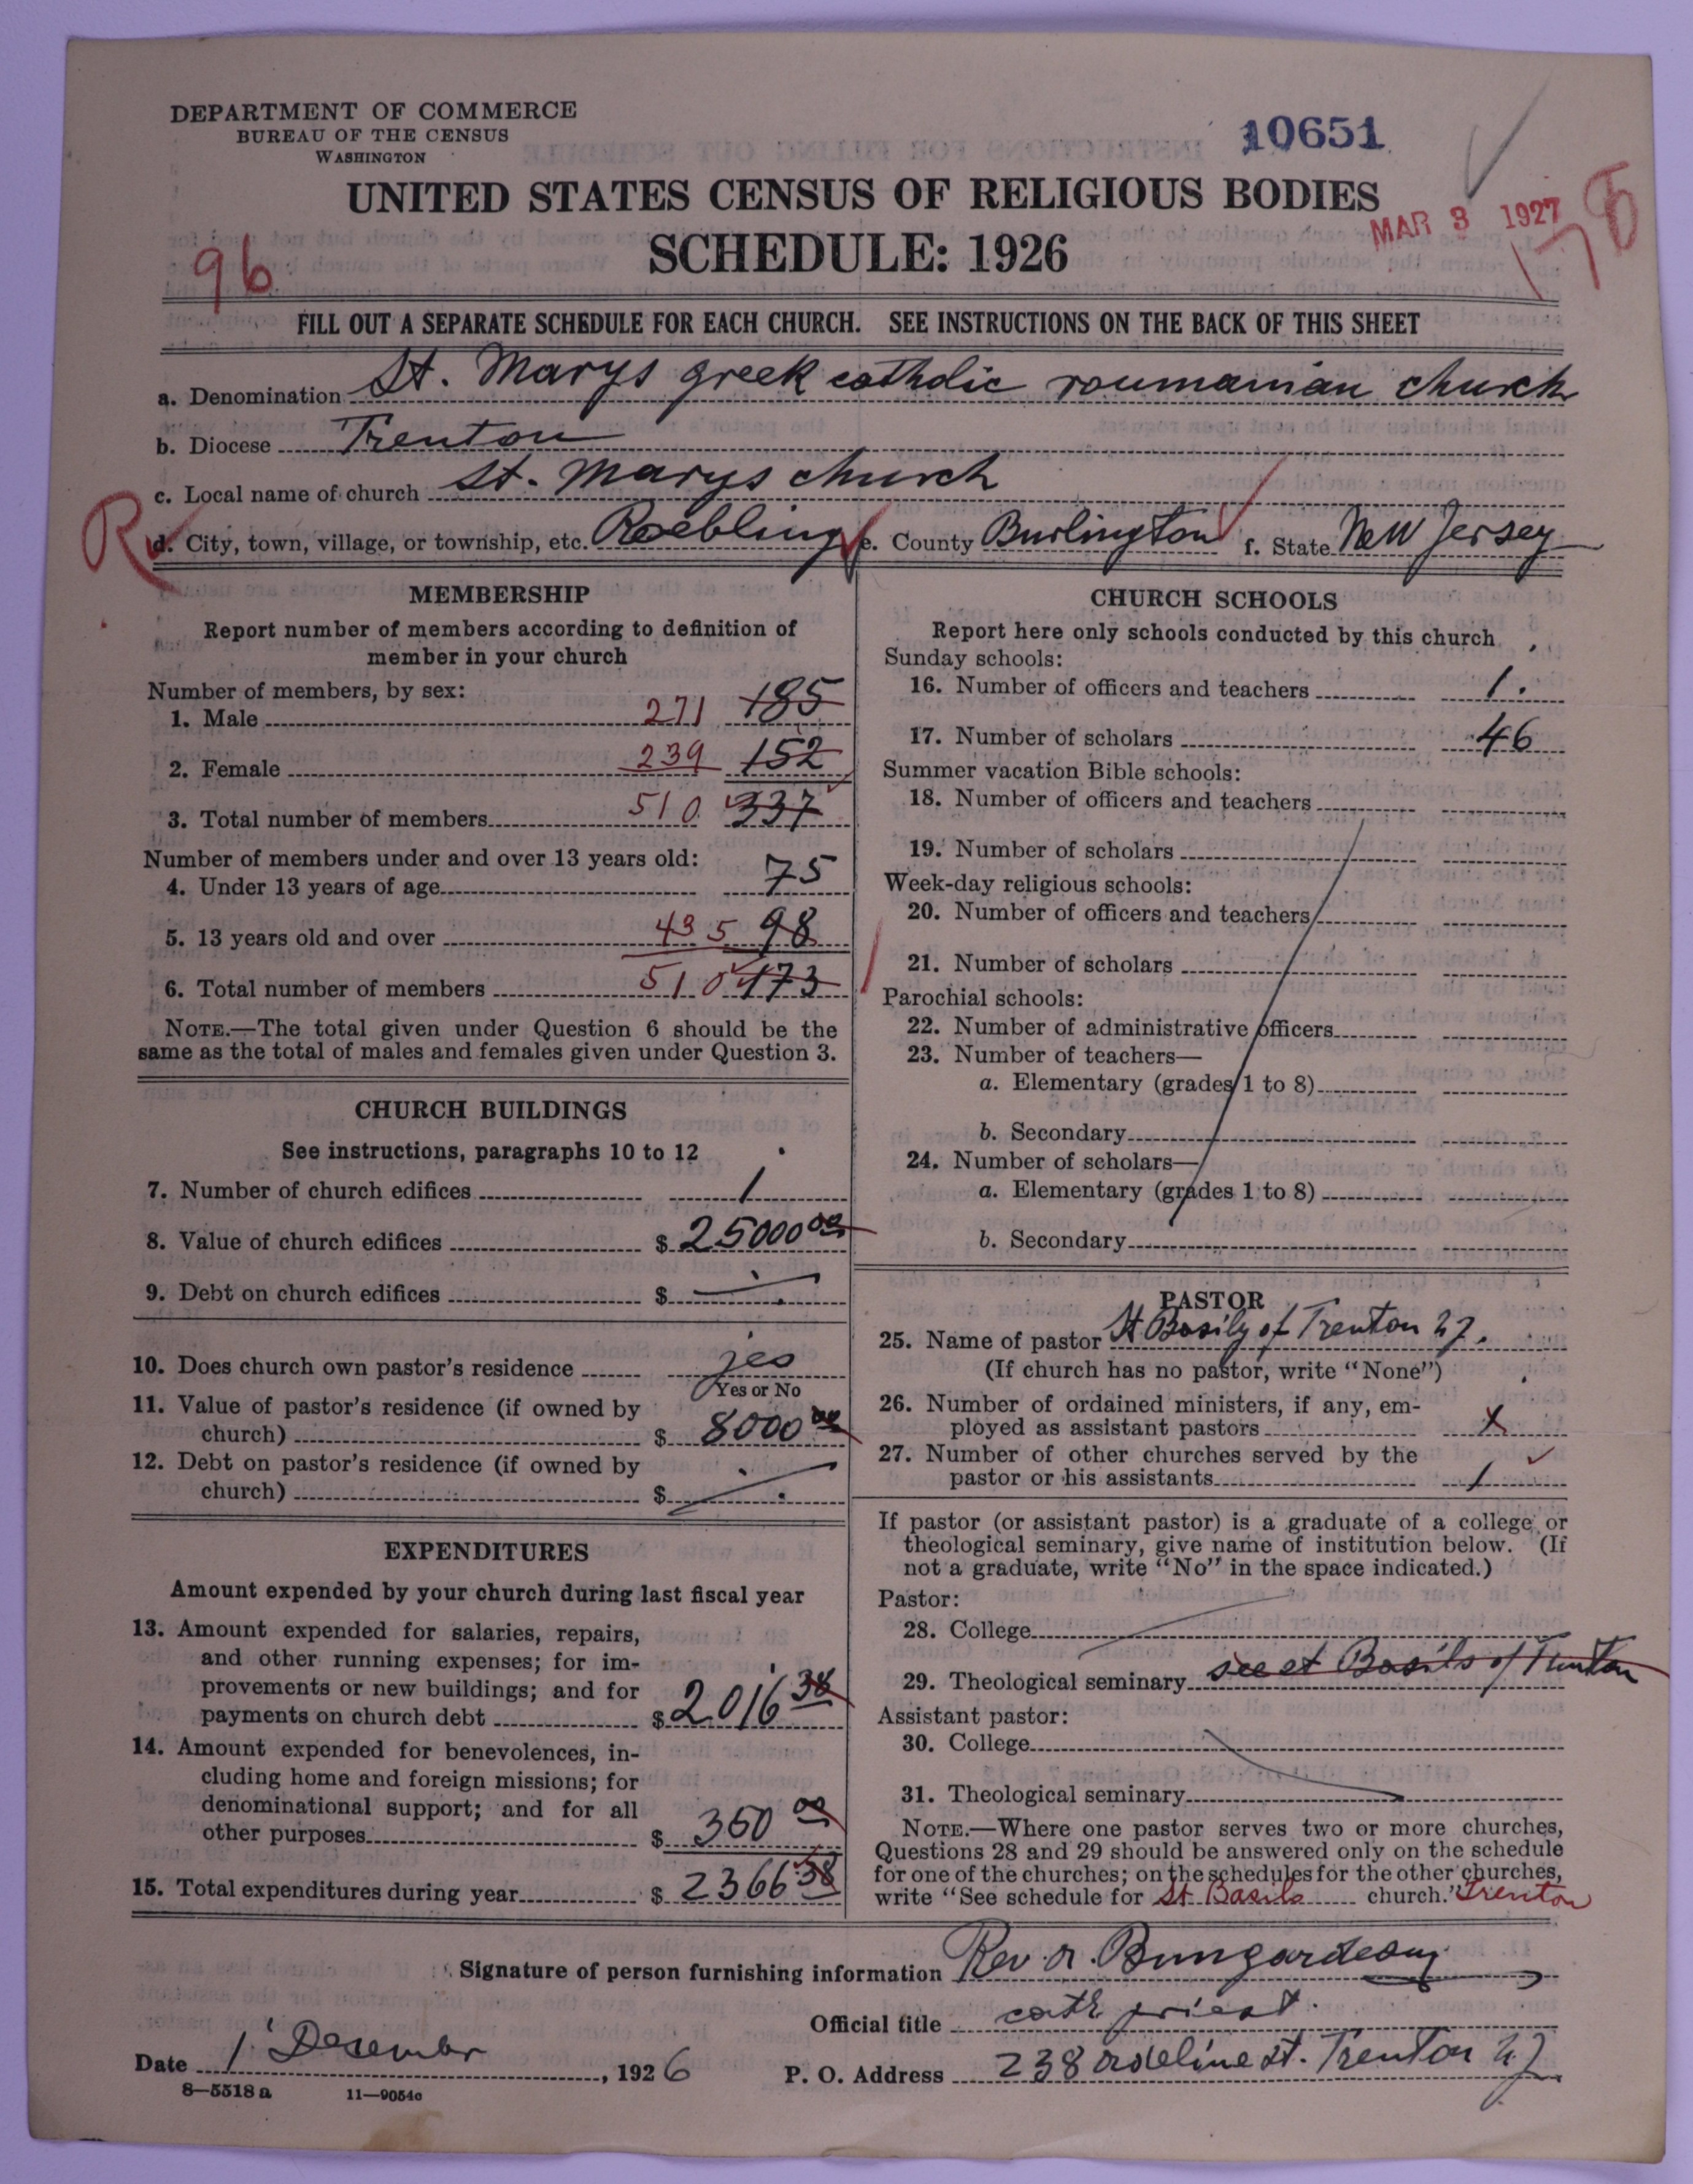 DEPARTMENT OF COMMERCE
BUREAU OF THE CENSUS
WASHINGTON
10651
UNITED STATES CENSUS OF RELIGIOUS BODIES
MAR 3 1927
SCHEDULE: 1926
96
FILL OUT A SEPARATE SCHEDULE FOR EACH CHURCH. SEE INSTRUCTIONS ON THE BACK OF THIS SHEET
a. Denomination St. Marys greek catholic roumanian church
b. Diocese Trenton
c. Local name of church St. Marys church
R d. City, town, village, or township, etc. Roebling e. County Burlington f. State New Jersey
MEMBERSHIP
Report number of members according to definition of
member in your church
Number of members, by sex:
1. Male 271 185
2. Female 239 152
3. Total number of members 510 337
Number of members under and over 13 years old:
4. Under 13 years of age 75
5. 13 years old and over 435 98
6. Total number of members 510 173
NOTE.—The total given under Question 6 should be the
same as the total of males and females given under Question 3.
CHURCH BUILDINGS
See instructions, paragraphs 10 to 12
7. Number of church edifices 1
8. Value of church edifices $ 25000 00
9. Debt on church edifices $
10. Does church own pastor's residence yes
Yes or No
11. Value of pastor's residence (if owned by
church) $ 8000 00
12. Debt on pastor's residence (if owned by
church) $
EXPENDITURES
Amount expended by your church during last fiscal year
13. Amount expended for salaries, repairs,
and other running expenses; for im-
provements or new buildings; and for
payments on church debt $ 2016 38
14. Amount expended for benevolences, in-
cluding home and foreign missions; for
denominational support; and for all
other purposes $ 350 00
15. Total expenditures during year $ 2366 38
CHURCH SCHOOLS
Report here only schools conducted by this church
Sunday schools:
16. Number of officers and teachers 1.
17. Number of scholars 46
Summer vacation Bible schools:
18. Number of officers and teachers
19. Number of scholars
Week-day religious schools:
20. Number of officers and teachers
21. Number of scholars
Parochial schools:
22. Number of administrative officers
23. Number of teachers—
a. Elementary (grades 1 to 8)
b. Secondary
24. Number of scholars—
a. Elementary (grades 1 to 8)
b. Secondary
PASTOR
25. Name of pastor St Basily of Trenton NJ.
(If church has no pastor, write "None")
26. Number of ordained ministers, if any, em-
ployed as assistant pastors x
27. Number of other churches served by the
pastor or his assistants 1
If pastor (or assistant pastor) is a graduate of a college or
theological seminary, give name of institution below. (If
not a graduate, write "No" in the space indicated.)
Pastor:
28. College
29. Theological seminary see st Basils of Trenton
Assistant pastor:
30. College
31. Theological seminary
NOTE.—Where one pastor serves two or more churches,
Questions 28 and 29 should be answered only on the schedule
for one of the churches; on the schedules for the other churches,
write "See schedule for St Basils church." Trenton
Signature of person furnishing information Rev. A. Bungardeany
Official title cath priest
Date 1 December, 1926 P. O. Address 238 Adeline St. Trenton NJ
8—5518 a 11—9054c